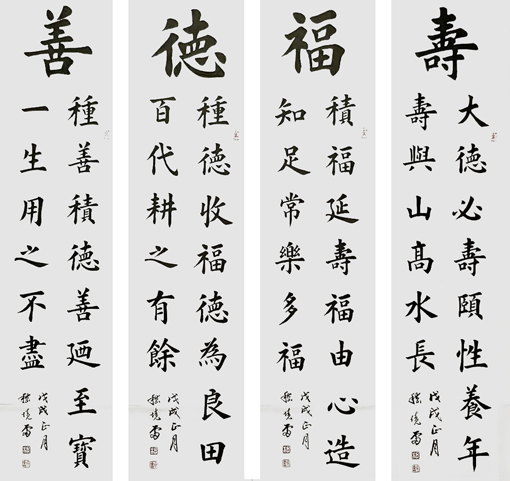 壽
大德必壽頤性養年
壽與山髙水長
戊戌正月
福
積福延壽福由心造
知足常樂多福
戊戌正月
德
種德收福德為良田
百代耕之有餘
戊戌正月
善
種善積德善廼至寶
一生用之不盡
戊戌正月